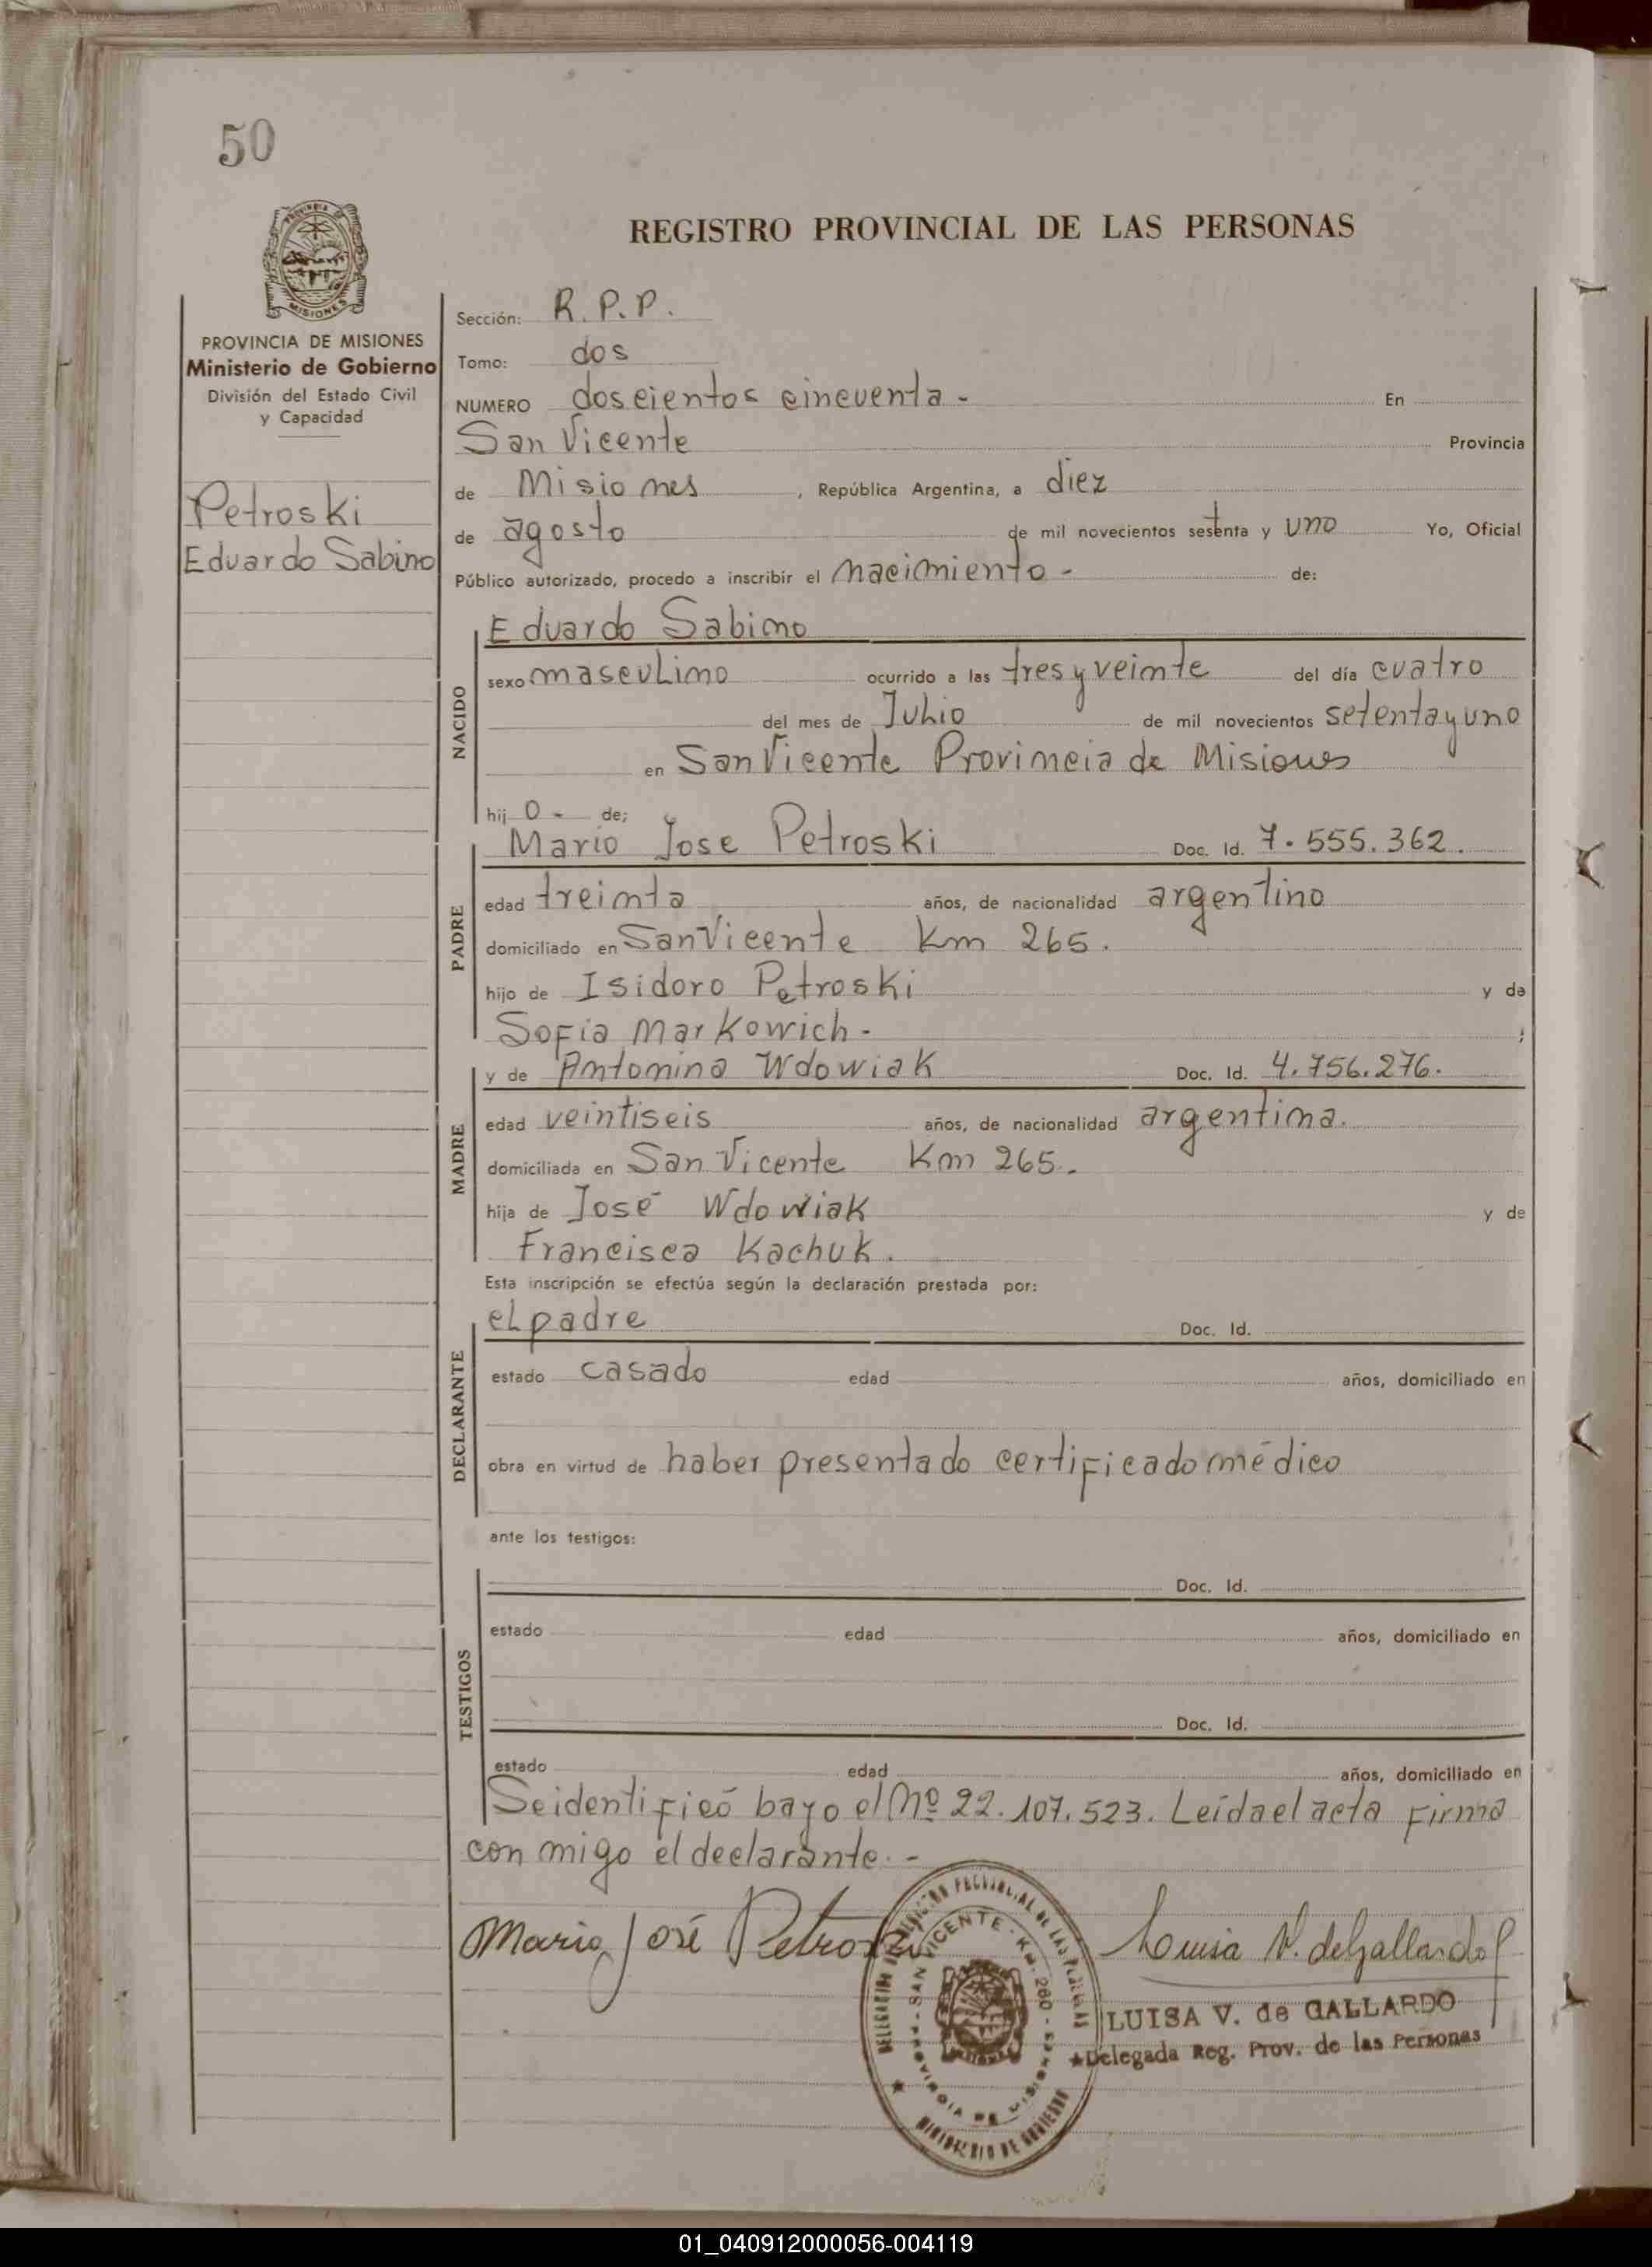 50
REGISTRO PROVINCIAL DE LAS PERSONAS
PROVINCIA DE
MISIONES
PROVINCIA DE MISIONES
Ministerio de Gobierno
División del Estado Civil
y Capacidad
Petroski
Eduardo Sabino
Sección: R.P.P.
Tomo: dos
NUMERO doscientos cincuenta - En
San Vicente Provincia
de Misiones, República Argentina, a diez
de agosto de mil novecientos setenta y uno Yo, Oficial
Público autorizado, procedo a inscribir el nacimiento - de:
NACIDO
Eduardo Sabino
sexo masculino ocurrido a las tres y veinte del día cuatro
del mes de Julio de mil novecientos setenta y uno
en San Vicente Provincia de Misiones
hij o - de;
PADRE
Mario Jose Petroski Doc. Id. 7.555.362.
edad treinta años, de nacionalidad argentino
domiciliado en San Vicente Km 265.
hijo de Isidoro Petroski y de
Sofia Markowich - ;
MADRE
y de Antonina Wdowiak Doc. Id. 4.756.276.
edad veintiseis años, de nacionalidad argentina.
domiciliada en San Vicente Km 265.
hija de José Wdowiak y de
Francisca Kachuk.
Esta inscripción se efectúa según la declaración prestada por:
DECLARANTE
el padre Doc. Id.
estado casado edad años, domiciliado en
obra en virtud de haber presentado certificado médico
ante los testigos:
TESTIGOS
Doc. Id.
estado edad años, domiciliado en
Doc. Id.
estado edad años, domiciliado en
Se identificó bajo el Nº 22.107.523. Leída el acta firma
con migo el declarante.-
Mario José Petroski
Luisa V. de Gallardo
DELEGACION REGISTRO PROVINCIAL DE LAS PERSONAS
SAN VICENTE - KM. 260 -
PROVINCIA DE MISIONES
MINISTERIO DE GOBIERNO
LUISA V. de GALLARDO
Delegada Reg. Prov. de las Personas
01_040912000056-004119